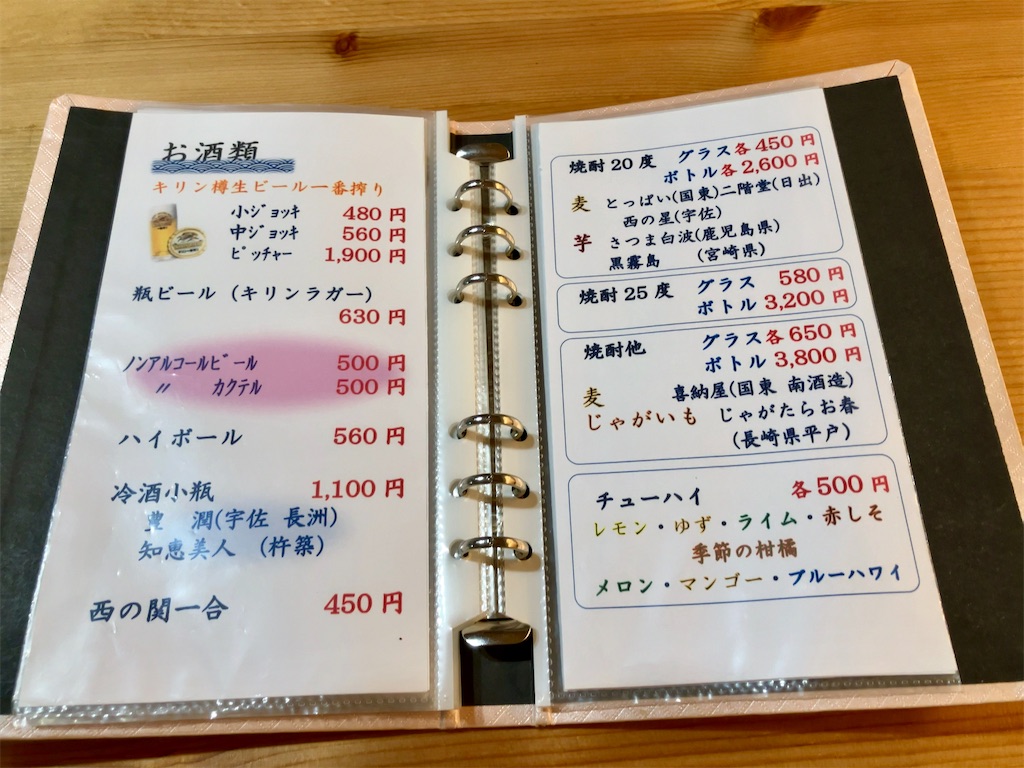 お酒類
キリン樽生ビール一番搾り
小ジョッキ 480円
中ジョッキ 560円
ピッチャー 1,900円
瓶ビール (キリンラガー)
630円
ノンアルコールビール 500円
〃 カクテル 500円
ハイボール 560円
冷酒小瓶 1,100円
豊 潤(宇佐 長洲)
知恵美人 (杵築)
西の関一合 450円
焼酎20度 グラス各450円
ボトル各2,600円
麦 とっぱい(国東)二階堂(日出)
西の星(宇佐)
芋 さつま白波(鹿児島県)
黒霧島 (宮崎県)
焼酎25度 グラス 580円
ボトル 3,200円
焼酎他 グラス各650円
ボトル 3,800円
麦 喜納屋(国東 南酒造)
じゃがいも じゃがたらお春
(長崎県平戸)
チューハイ 各500円
レモン・ゆず・ライム・赤しそ
季節の柑橘
メロン・マンゴー・ブルーハワイ